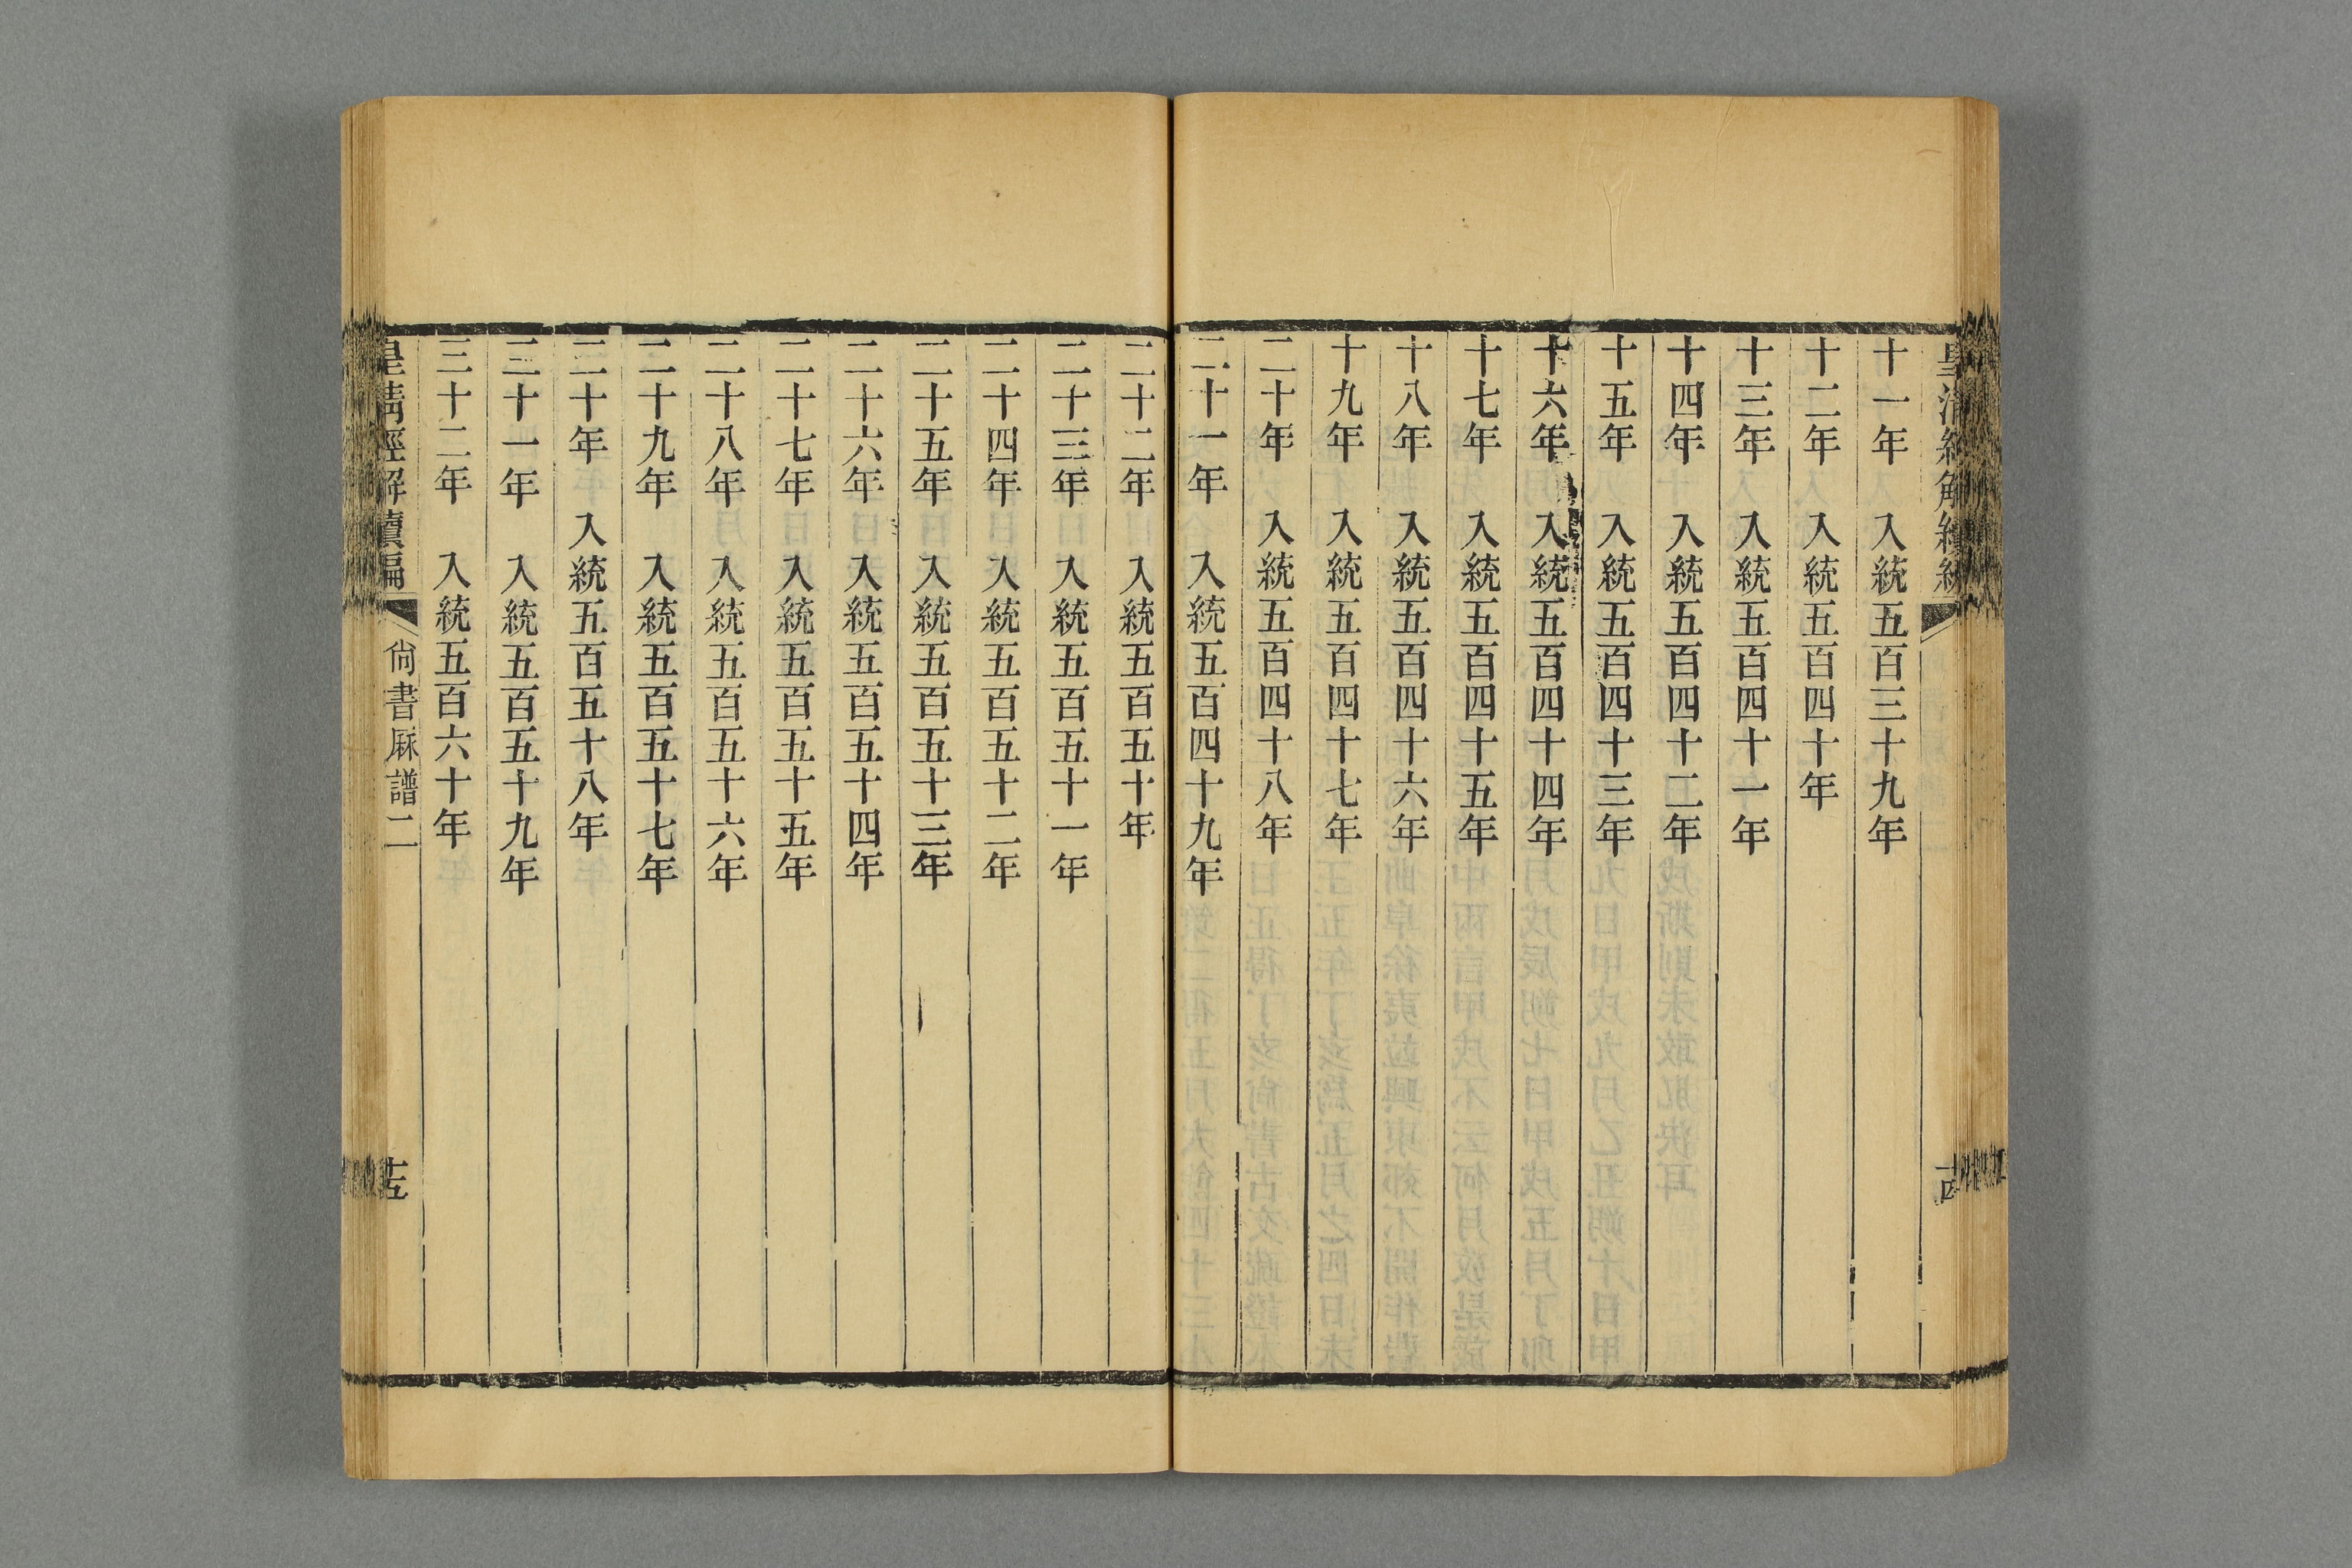 皇清經解續編
十四
十一年　入統五百三十九年
十二年　入統五百四十年
十三年　入統五百四十一年
十四年　入統五百四十二年
十五年　入統五百四十三年
十六年　入統五百四十四年
十七年　入統五百四十五年
十八年　入統五百四十六年
十九年　入統五百四十七年
二十年　入統五百四十八年
二十一年　入統五百四十九年
二十二年　入統五百五十年
二十三年　入統五百五十一年
二十四年　入統五百五十二年
二十五年　入統五百五十三年
二十六年　入統五百五十四年
二十七年　入統五百五十五年
二十八年　入統五百五十六年
二十九年　入統五百五十七年
三十年　入統五百五十八年
三十一年　入統五百五十九年
三十二年　入統五百六十年
皇清經解續編　尙書厤譜二
十五